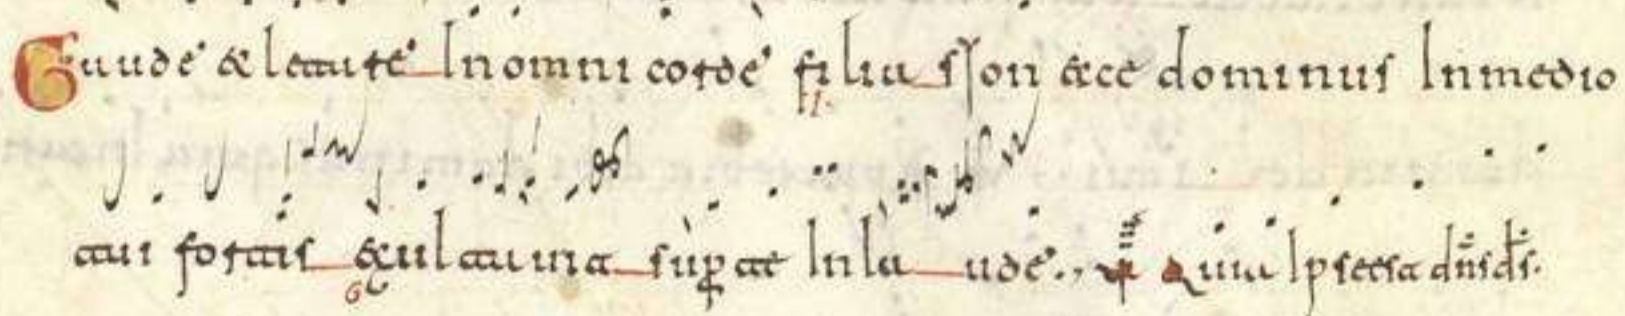 Gaude & letare In omni corde filia sion & ecce dominus In medio
tui fortis & exultauit super te In laude. ℣ Quia Ipse est dn̄s ds̄.